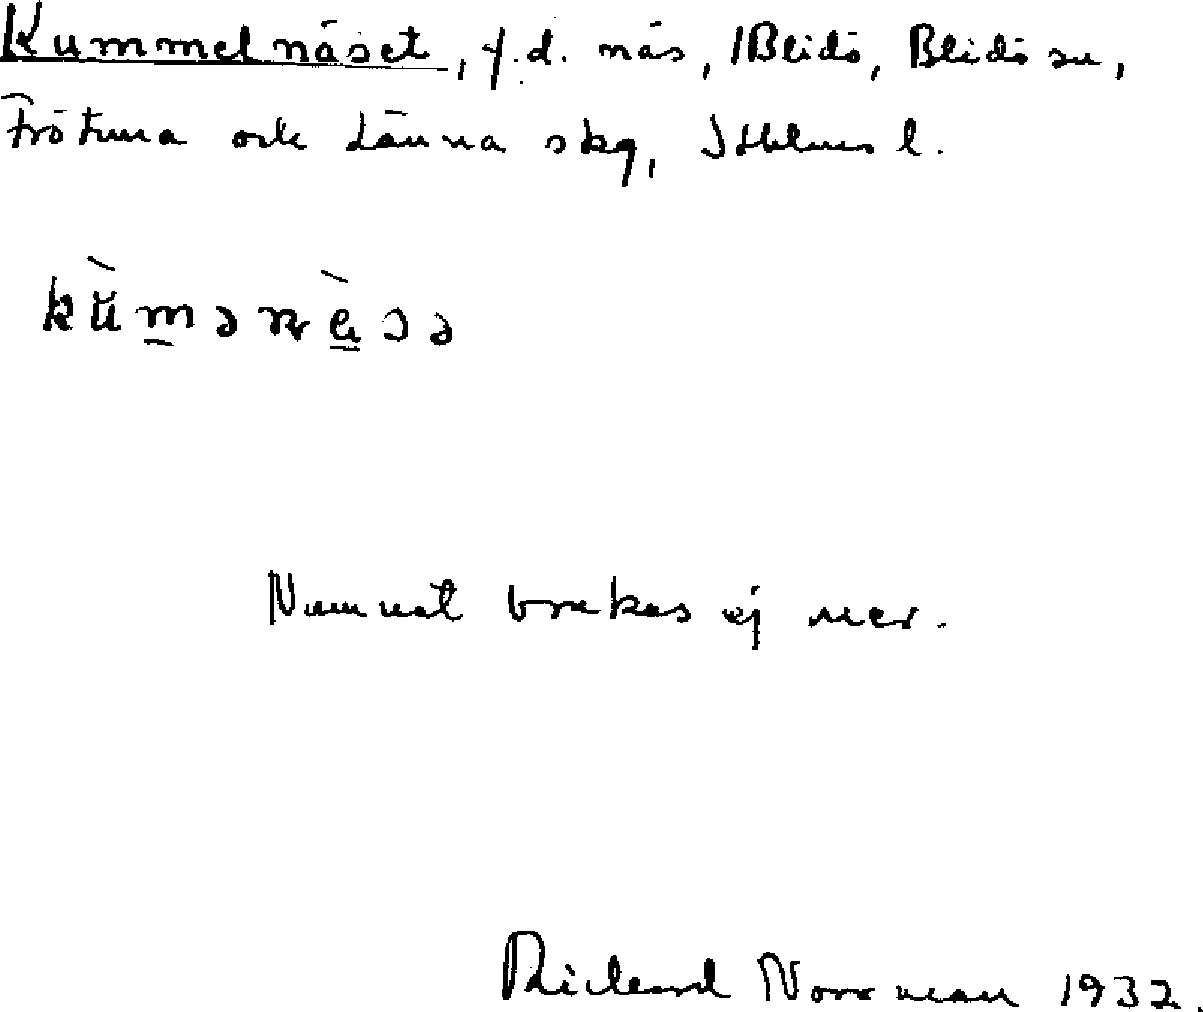 Kummelnäset, f.d. näs, Blidö, Blidö sn,
Frötuna och Länna skg, Sthlms l.
kŭ̀mənæ̀sə
Namnet brukas ej mer.
Rickard Norrman 1932.